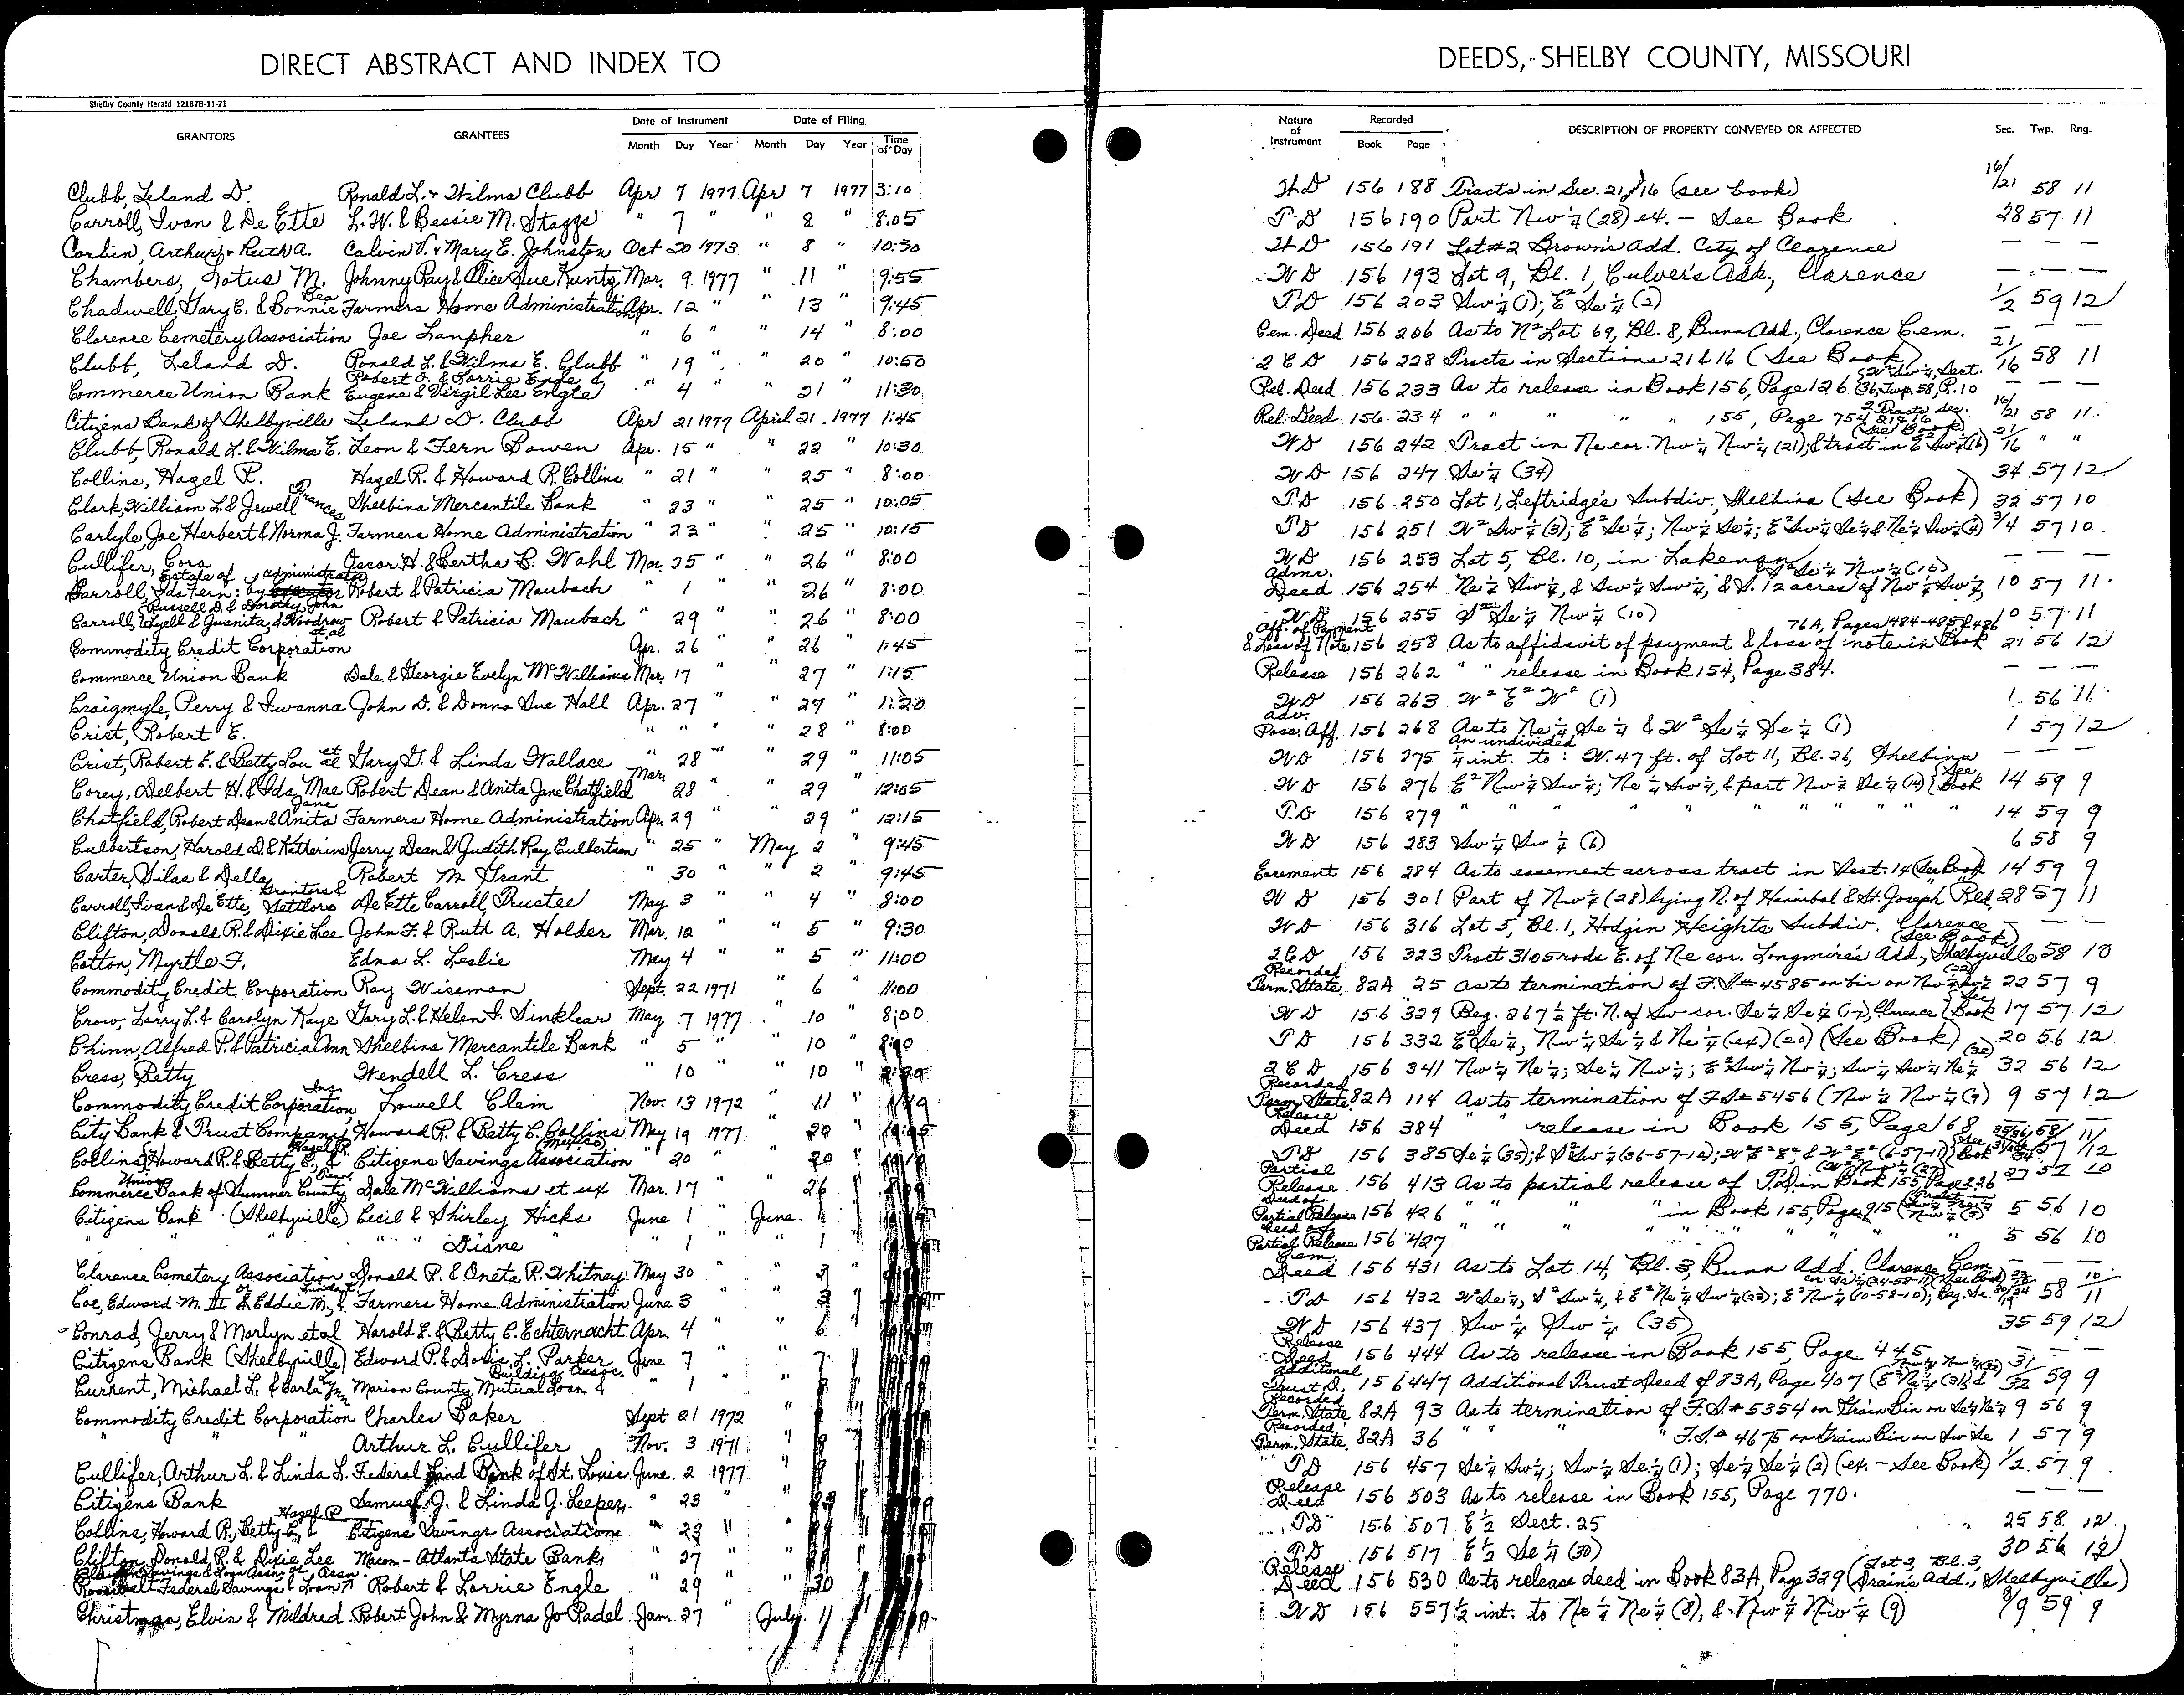 DIRECT ABSTRACT AND INDEX TO
DEEDS, SHELBY COUNTY, MISSOURI
Shelby County Herald 12187B-11-71
GRANTORS GRANTEES Date of Instrument Month Day Year Date of Filing Month Day Year Time of Day
Nature of Instrument Recorded Book Page DESCRIPTION OF PROPERTY CONVEYED OR AFFECTED Sec. Twp. Rng.
Clubb, Leland D. Ronald L. & Wilma Clubb Apr 7 1977 Apr 7 1977 3:10
Carroll, Ivan & De Ette L. W. & Bessie M. Staggs " 7 " " 8 " 8:05
Corbin, Arthur & Ruth A. Calvin V. & Mary E. Johnston Oct 20 1973 " 8 " 10:30
Chambers, Lotus M. Johnny Ray & Alice Sue Kuntz Mar. 9 1977 " 11 " 9:55
Chadwell, Gary E. & Bonnie Bea Farmers Home Administration Apr. 12 " " 13 " 9:45
Clarence Cemetery Association Joe Lanpher " 6 " " 14 " 8:00
Clubb, Leland D. Ronald L. & Wilma E. Clubb " 19 " " 20 " 10:50
Commerce Union Bank Robert J. & Lorrie Engle & Eugene & Virgil Lee Engle " 4 " 21 " 11:30
Citizens Bank of Shelbyville Leland D. Clubb Apr 21 1977 April 21 1977 1:45
Clubb, Ronald L. & Wilma E. Leon & Fern Bowen Apr. 15 " " 22 " 10:30
Collins, Hazel R. Hazel R. & Howard R. Collins " 21 " " 25 " 8:00
Clark, William L. & Jewell Frances Shelbina Mercantile Bank " 23 " " 25 " 10:05
Carlyle, Joe Herbert & Norma J. Farmers Home Administration " 23 " " 25 " 10:15
Cullifer, Cora Oscar H. & Bertha B. Wahl Mar. 25 " " 26 " 8:00
Carroll, Ida Fern: Estate of by administrator Robert & Patricia Maubach " 1 " 26 " 8:00
Carroll, Russell D. & Dorothy, John Lyell & Juanita, & Woodrow et al Robert & Patricia Maubach " 29 " " 26 " 8:00
Commodity Credit Corporation Apr. 26 " " 26 " 1:45
Commerce Union Bank Dale & Georgie Evelyn McWilliams Mar. 17 " " 27 " 1:15
Craigmyle, Perry & Iwanna John D. & Donna Sue Hall Apr. 27 " " 27 " 1:20
Crist, Robert E. " " " " 28 " 8:00
Crist, Robert E. & Betty Lou et al Gary G. & Linda Wallace " 28 " " 29 " 11:05
Corey, Delbert H. & Ida Mae Robert Dean & Anita Jane Chatfield Mar. 28 " " 29 " 12:05
Chatfield, Robert Dean & Anita Jane Farmers Home Administration Apr. 29 " " 29 " 12:15
Culbertson, Harold D. & Katherine Jerry Dean & Judith Kay Culbertson " 25 " May 2 " 9:45
Carter, Silas & Della Robert M. Grant " 30 " " 2 " 9:45
Carroll, Ivan & De Ette, Grantors & Settlors De Ette Carroll, Trustee May 3 " " 4 " 8:00
Clifton, Donald R. & Dixie Lee John F. & Ruth A. Holder Mar. 12 " " 5 " 9:30
Cotton, Myrtle F. Edna L. Leslie May 4 " " 5 " 11:00
Commodity Credit Corporation Ray Wiseman Sept. 22 1971 " 6 " 11:00
Crow, Larry L. & Carolyn Kaye Gary L. & Helen I. Sinklear May 7 1977 " 10 " 8:00
Chinn, Alfred P. & Patricia Ann Shelbina Mercantile Bank " 5 " " 10 "
Cress, Betty Wendell L. Cress " 10 " " 10 "
Commodity Credit Corporation Inc. Lowell Clem Nov. 13 1972 " 11 "
City Bank & Trust Company Howard R. & Betty C. Collins May 19 1977 " 20 "
Collins, Howard R. & Betty C., & Hazel R. Citizens Savings Association (Mexico) " 20 " " 20 "
Commerce Union Bank of Sumner County Tenn. Dale McWilliams et ux Mar. 17 " " 26
Citizens Bank (Shelbyville) Cecil & Shirley Hicks June 1 " June
" " " " Diane " " 1 " " 1
Clarence Cemetery Association Donald R. & Oneta R. Whitney May 30 " " 3
Coe, Edward M. III or Eddie M., & Linda Farmers Home Administration June 3 " " 3
Conrad, Jerry & Marlyn et al Harold E. & Betty C. Echternacht Apr. 4 " " 6
Citizens Bank (Shelbyville) Edward P. & Doris L. Parker June 7 " " 7
Current, Michael L. & Carla Lynn Marion County Mutual Loan & Building Assoc. " 1 " "
Commodity Credit Corporation Charles Baker Sept 21 1972 "
" " " Arthur L. Cullifer Nov. 3 1971 "
Cullifer, Arthur L. & Linda L. Federal Land Bank of St. Louis June 2 1977 "
Citizens Bank Samuel J. & Linda J. Leeper " 23 " "
Collins, Howard R., Betty C., & Hazel R. Citizens Savings Association " 23 " "
Clifton, Donald R. & Dixie Lee Macon-Atlanta State Bank " 27 " "
Roosevelt Federal Savings & Loan Robert & Lorrie Engle " 29 " " 30
Christman, Elvin & Mildred Robert John & Myrna Jo Radel Jan. 27 " July
WD 156 188 Tracts in Sec. 21 & 16 (see book) 16/21 58 11
TD 156 190 Part Nw¼ (28) ex. - See Book 28 57 11
WD 156 191 Lot #2 Brown's Add. City of Clarence — — —
WD 156 193 Lot 9, Bl. 1, Culver's Add., Clarence — — —
TD 156 203 Sw¼ (1); E² Se¼ (2) 1/2 59 12
Cem. Deed 156 206 As to N² Lot 69, Bl. 8, Bunn Add., Clarence Cem. — — —
QCD 156 228 Tracts in Sections 21 & 16 (See Book) 21/16 58 11
Rel. Deed 156 233 As to release in Book 156, Page 126 (W² Sw¼, Sect. 36, Twp. 58, R. 10 — — —
Rel. Deed 156 234 " " " " " 155, Page 754 2 Tracts Sec. 21 & 16 (See Book) 16/21 58 11
WD 156 242 Tract in Ne cor. Nw¼ Nw¼ (21); & tract in E² Sw¼ (16) 21/16 " "
WD 156 247 Se¼ (34) 34 57 12
TD 156 250 Lot 1, Leftridge's Subdiv., Shelbina (See Book) 32 57 10
TD 156 251 W² Sw¼ (3); E² Se¼; Nw¼ Se¼; E² Sw¼ Se¼ & Ne¼ Sw¼ (4) 3/4 57 10
WD 156 253 Lot 5, Bl. 10, in Lakenan — — —
Admr. Deed 156 254 Ne¼ Sw¼, & Sw¼ Sw¼, & S. 12 acres of Nw¼ Sw¼, S² Se¼ Nw¼ (10) 10 57 11
WD 156 255 S² Se¼ Nw¼ (10) 10 57 11
Aff. of Payment & Loss of Note 156 258 As to affidavit of payment & loss of note in Book 76A, Pages 484-485 & 486 21 56 12
Release 156 262 " " release in Book 154, Page 384. — — —
WD 156 263 W² E² W² (1) 1 56 11
Adv. Poss. Aff. 156 268 As to Ne¼ Se¼ & W² Se¼ Se¼ (1) 1 57 12
WD 156 275 An undivided ¼ int. to: W. 47 ft. of Lot 11, Bl. 26, Shelbina — — —
WD 156 276 E² Nw¼ Sw¼; Ne¼ Sw¼, & part Nw¼ Se¼ (14) (See Book 14 59 9
TD 156 279 " " " " " " " " " 14 59 9
WD 156 283 Sw¼ Sw¼ (6) 6 58 9
Easement 156 284 As to easement across tract in Sect. 14 (See Book) 14 59 9
WD 156 301 Part of Nw¼ (28) lying N. of Hannibal & St. Joseph Rd. 28 57 11
WD 156 316 Lot 5, Bl. 1, Hodgin Heights Subdiv. Clarence — — —
QCD 156 323 Tract 31.05 rods E. of Ne cor. Longmire's Add., Shelbyville (See Book) 58 10
Recorded Term. State. 82A 25 As to termination of F.S.# 4585 on bin on Nw¼ (22) 22 57 9
WD 156 329 Beg. 267½ ft. N. of Sw cor. Se¼ Se¼ (17), Clarence (See Book 17 57 12
TD 156 332 E² Se¼, Nw¼ Se¼ & Ne¼ (ex) (20) (See Book) 20 56 12
QCD 156 341 Nw¼ Ne¼; Se¼ Nw¼; E² Sw¼ Nw¼; Sw¼ Sw¼ Ne¼ (32) 32 56 12
Recorded Term. State. 82A 114 As to termination of F.S.# 5456 (Nw¼ Nw¼ (9) 9 57 12
Release Deed 156 384 " " release in Book 155, Page 68
TD 156 385 Se¼ (35); & S² Sw¼ (36-57-12); (See Book
Partial Release 156 413 As to partial release of TD in Book 155, Page 226 27 57 10
Deed of Partial Release 156 426 " " " " in Book 155, Page 915 5 56 10
Deed of Partial Release 156 427 " " " " " " " 5 56 10
Cem. Deed 156 431 As to Lot 14, Bl. 3, Bunn Add. Clarence Cem. — — —
TD 156 432 58 10/11
WD 156 437 Sw¼ Sw¼ (35) 35 59 12
Release Deed 156 444 As to release in Book 155, Page 445 — — —
Additional Trust D. 156 447 Additional Trust Deed of 83A, Page 407 31/32 59 9
Recorded Term. State. 82A 93 As to termination of F.S.# 5354 on Grain Bin on Se¼ Ne¼ 9 56 9
Recorded Term. State. 82A 36 " " " F.S.# 4675 on Grain Bin on Sw Se 1 57 9
TD 156 457 Se¼ Sw¼; Sw¼ Se¼ (1); Se¼ Se¼ (2) (ex. - See Book) 1/2 57 9
Release Deed 156 503 As to release in Book 155, Page 770. — — —
TD 156 507 E½ Sect. 25 25 58 12
TD 156 517 E½ Se¼ (30) 30 56 12
Release Deed 156 530 As to release deed in Book 83A, Page 329 (Lot 3, Bl. 3, Drain's Add., Shelbyville)
WD 156 557 ½ int. to Ne¼ Ne¼ (8), & Nw¼ Nw¼ (9) 8/9 59 9